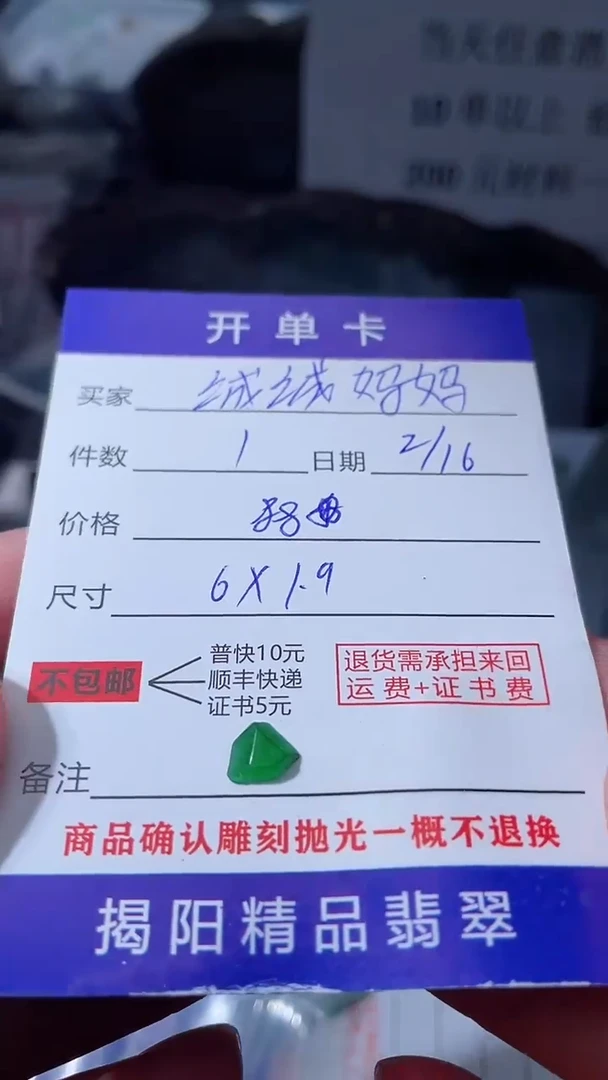 当天任意消
10单以上
200元时前一
开单卡
买家 绒绒妈妈
件数 1 日期 2/16
价格 88
尺寸 6X1.9
不包邮
普快10元
顺丰快递
证书5元
退货需承担来回
运费+证书费
备注
商品确认雕刻抛光一概不退换
揭阳精品翡翠